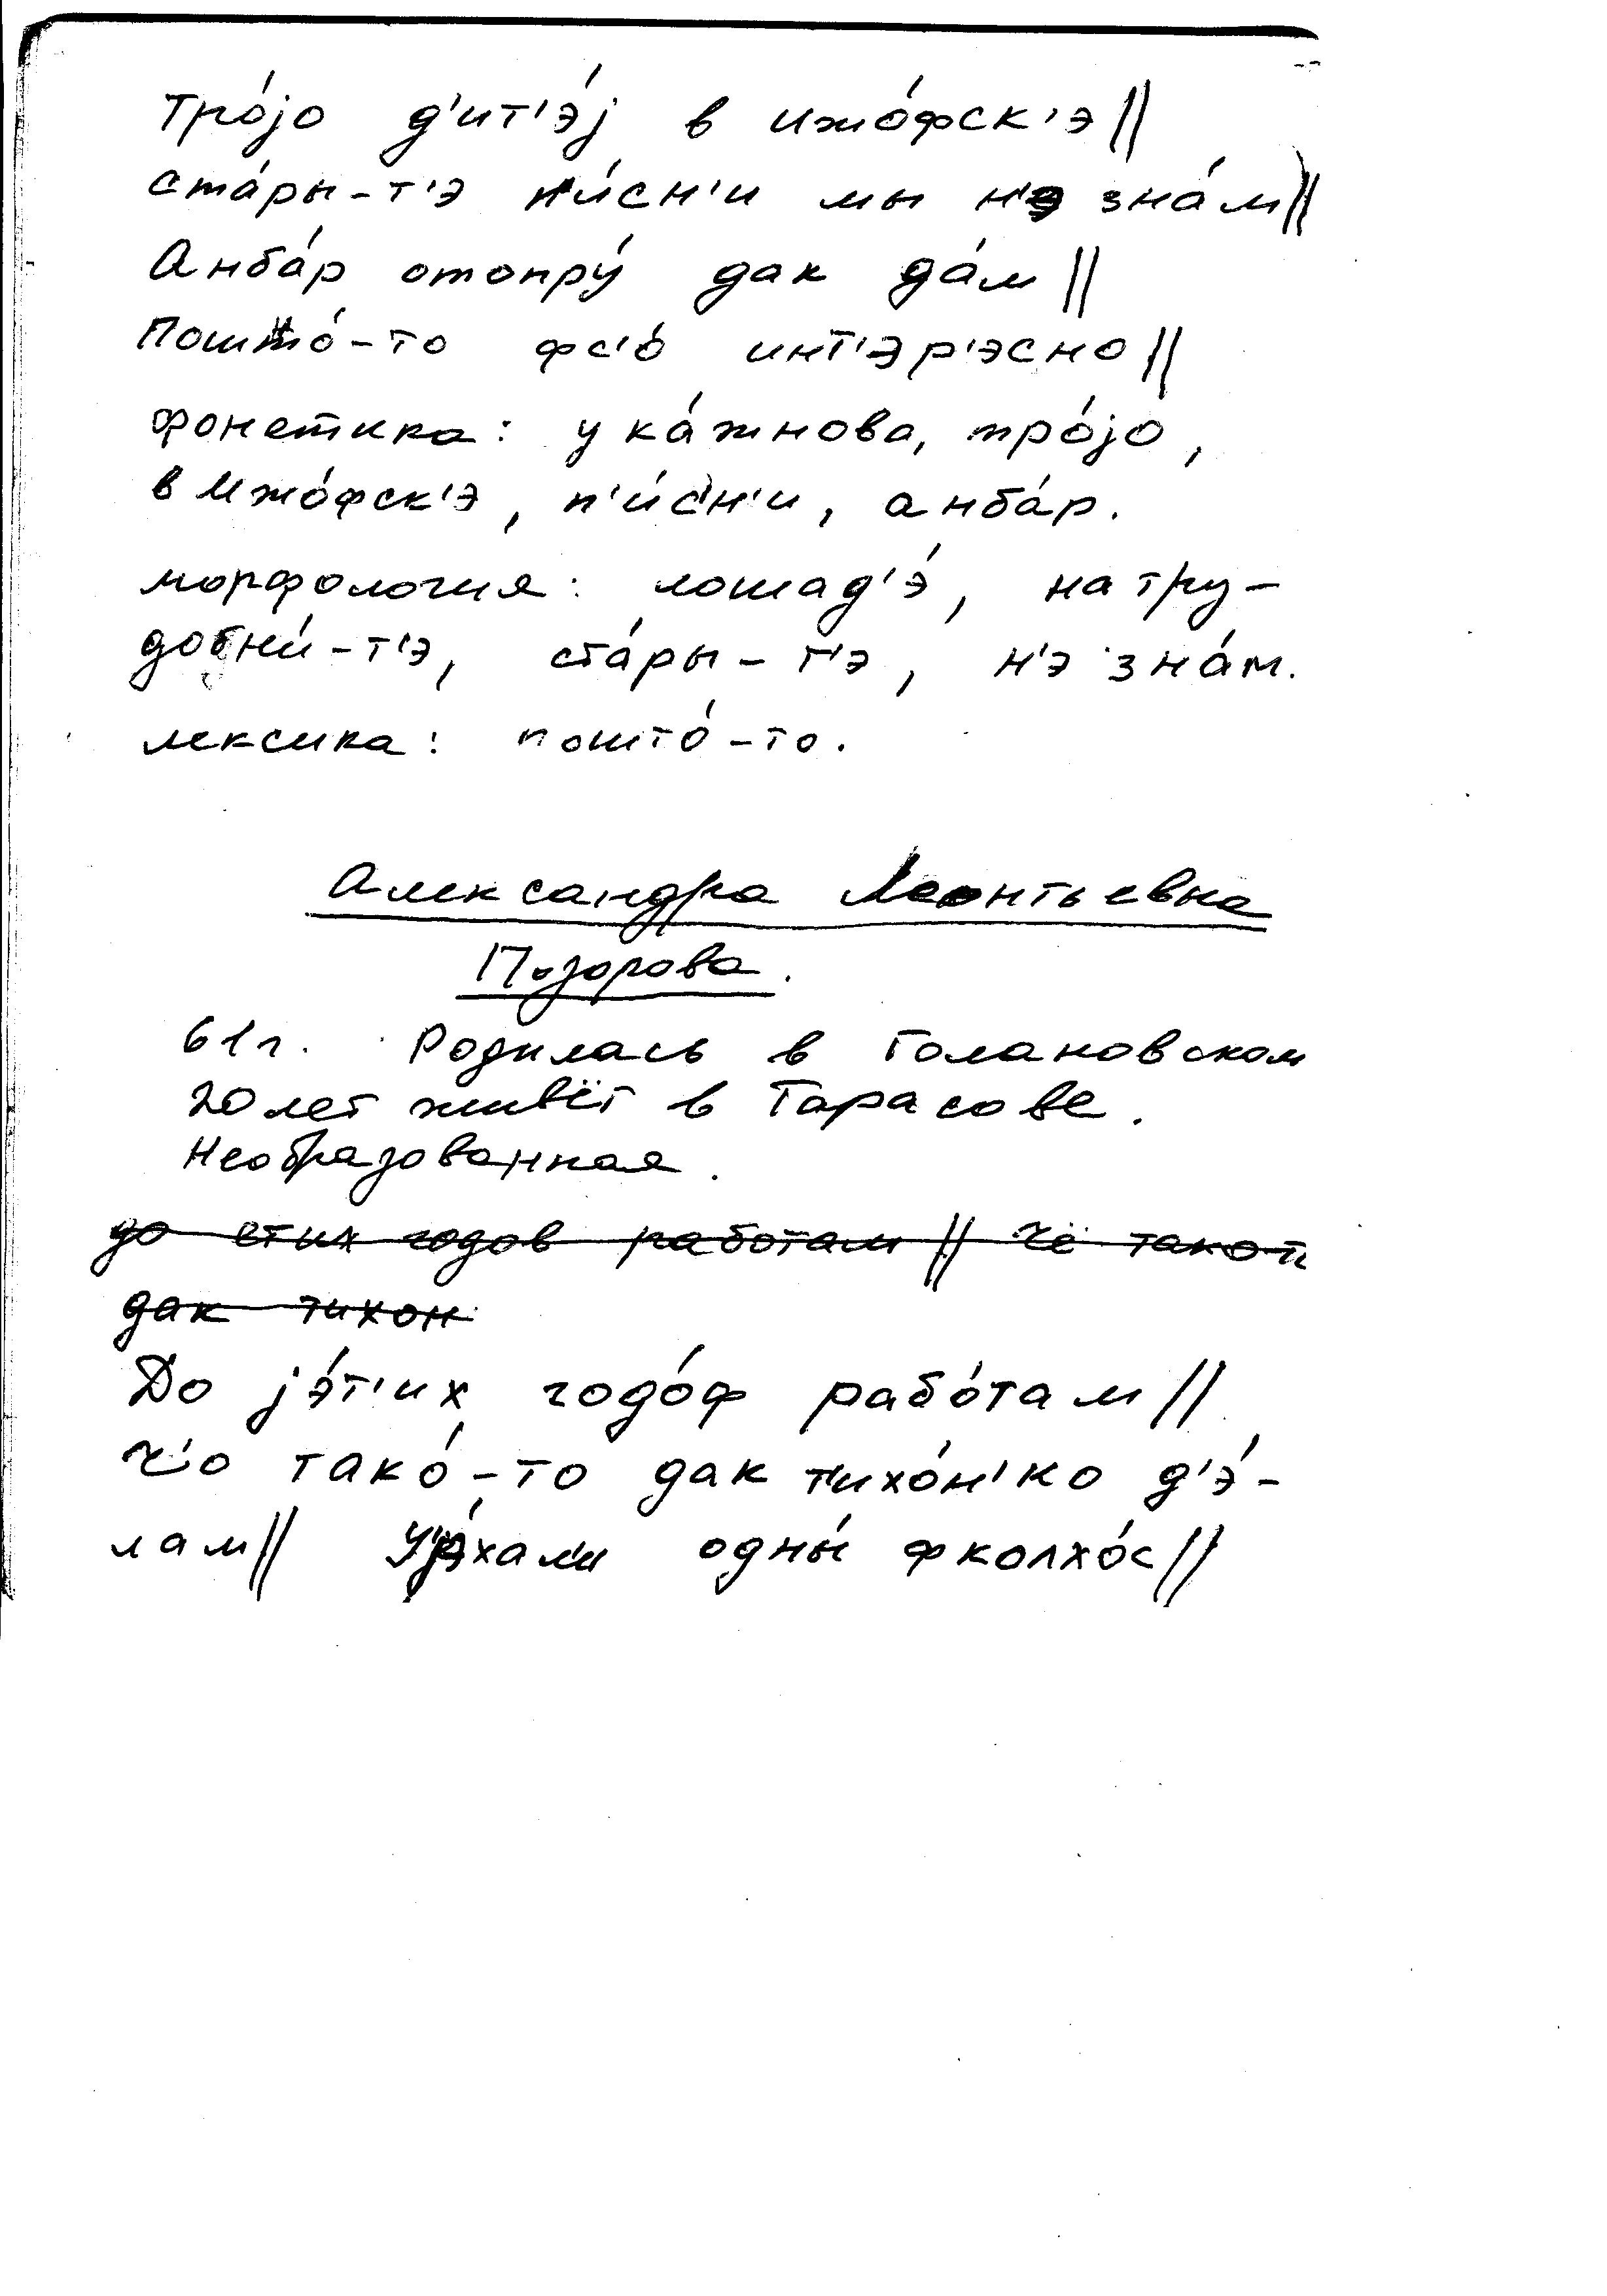 Тро́jо д'ит'э́j в ижо́фск'э||
ста́ры-т'э п'и́сн'и мы н'э зна́м||
Анба́р отопру́ дак да́м||
Пошто́-то фс'о́ инт'эр'эсно||
фонетика: у ка́жнова, тро́jо,
в Ижо́фск'э, п'и́с'н'и, анба́р.
морфология: лошад'э́, на тру-
додни́-т'э, ста́ры-т'э, н'э зна́м.
лексика: пошто́-то.
Александра Леонтьевна
Позорова.
61 г. Родилась в Голановском
20 лет живёт в Тарасове.
Необразованная.
до етих годов работам || чё тако-т
дак тихон
До jэ́т'их годо́ф рабо́там||
Ч'о тако́-то дак т'ихо́н'ко д'э́-
лам|| У́jэхал'и одны́ ф колхо́с||